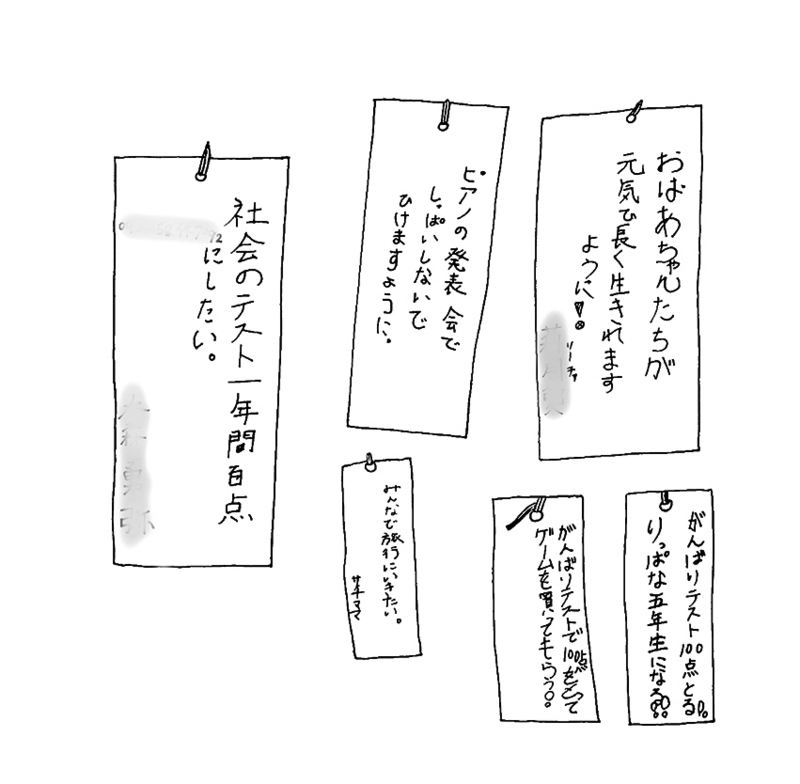 おばあちゃんたちが
元気で長く生きれます
ように!!
リーチャ
ピアノの発表会で
しっぱいしないで
ひけますように。
社会のテスト一年間百点
にしたい。
がんばりテスト100点とる!!
りっぱな五年生になる!!
がんばりテストで100点をとって
ゲームを買ってもらう。
みんなで旅行にいきたい。
サチママ